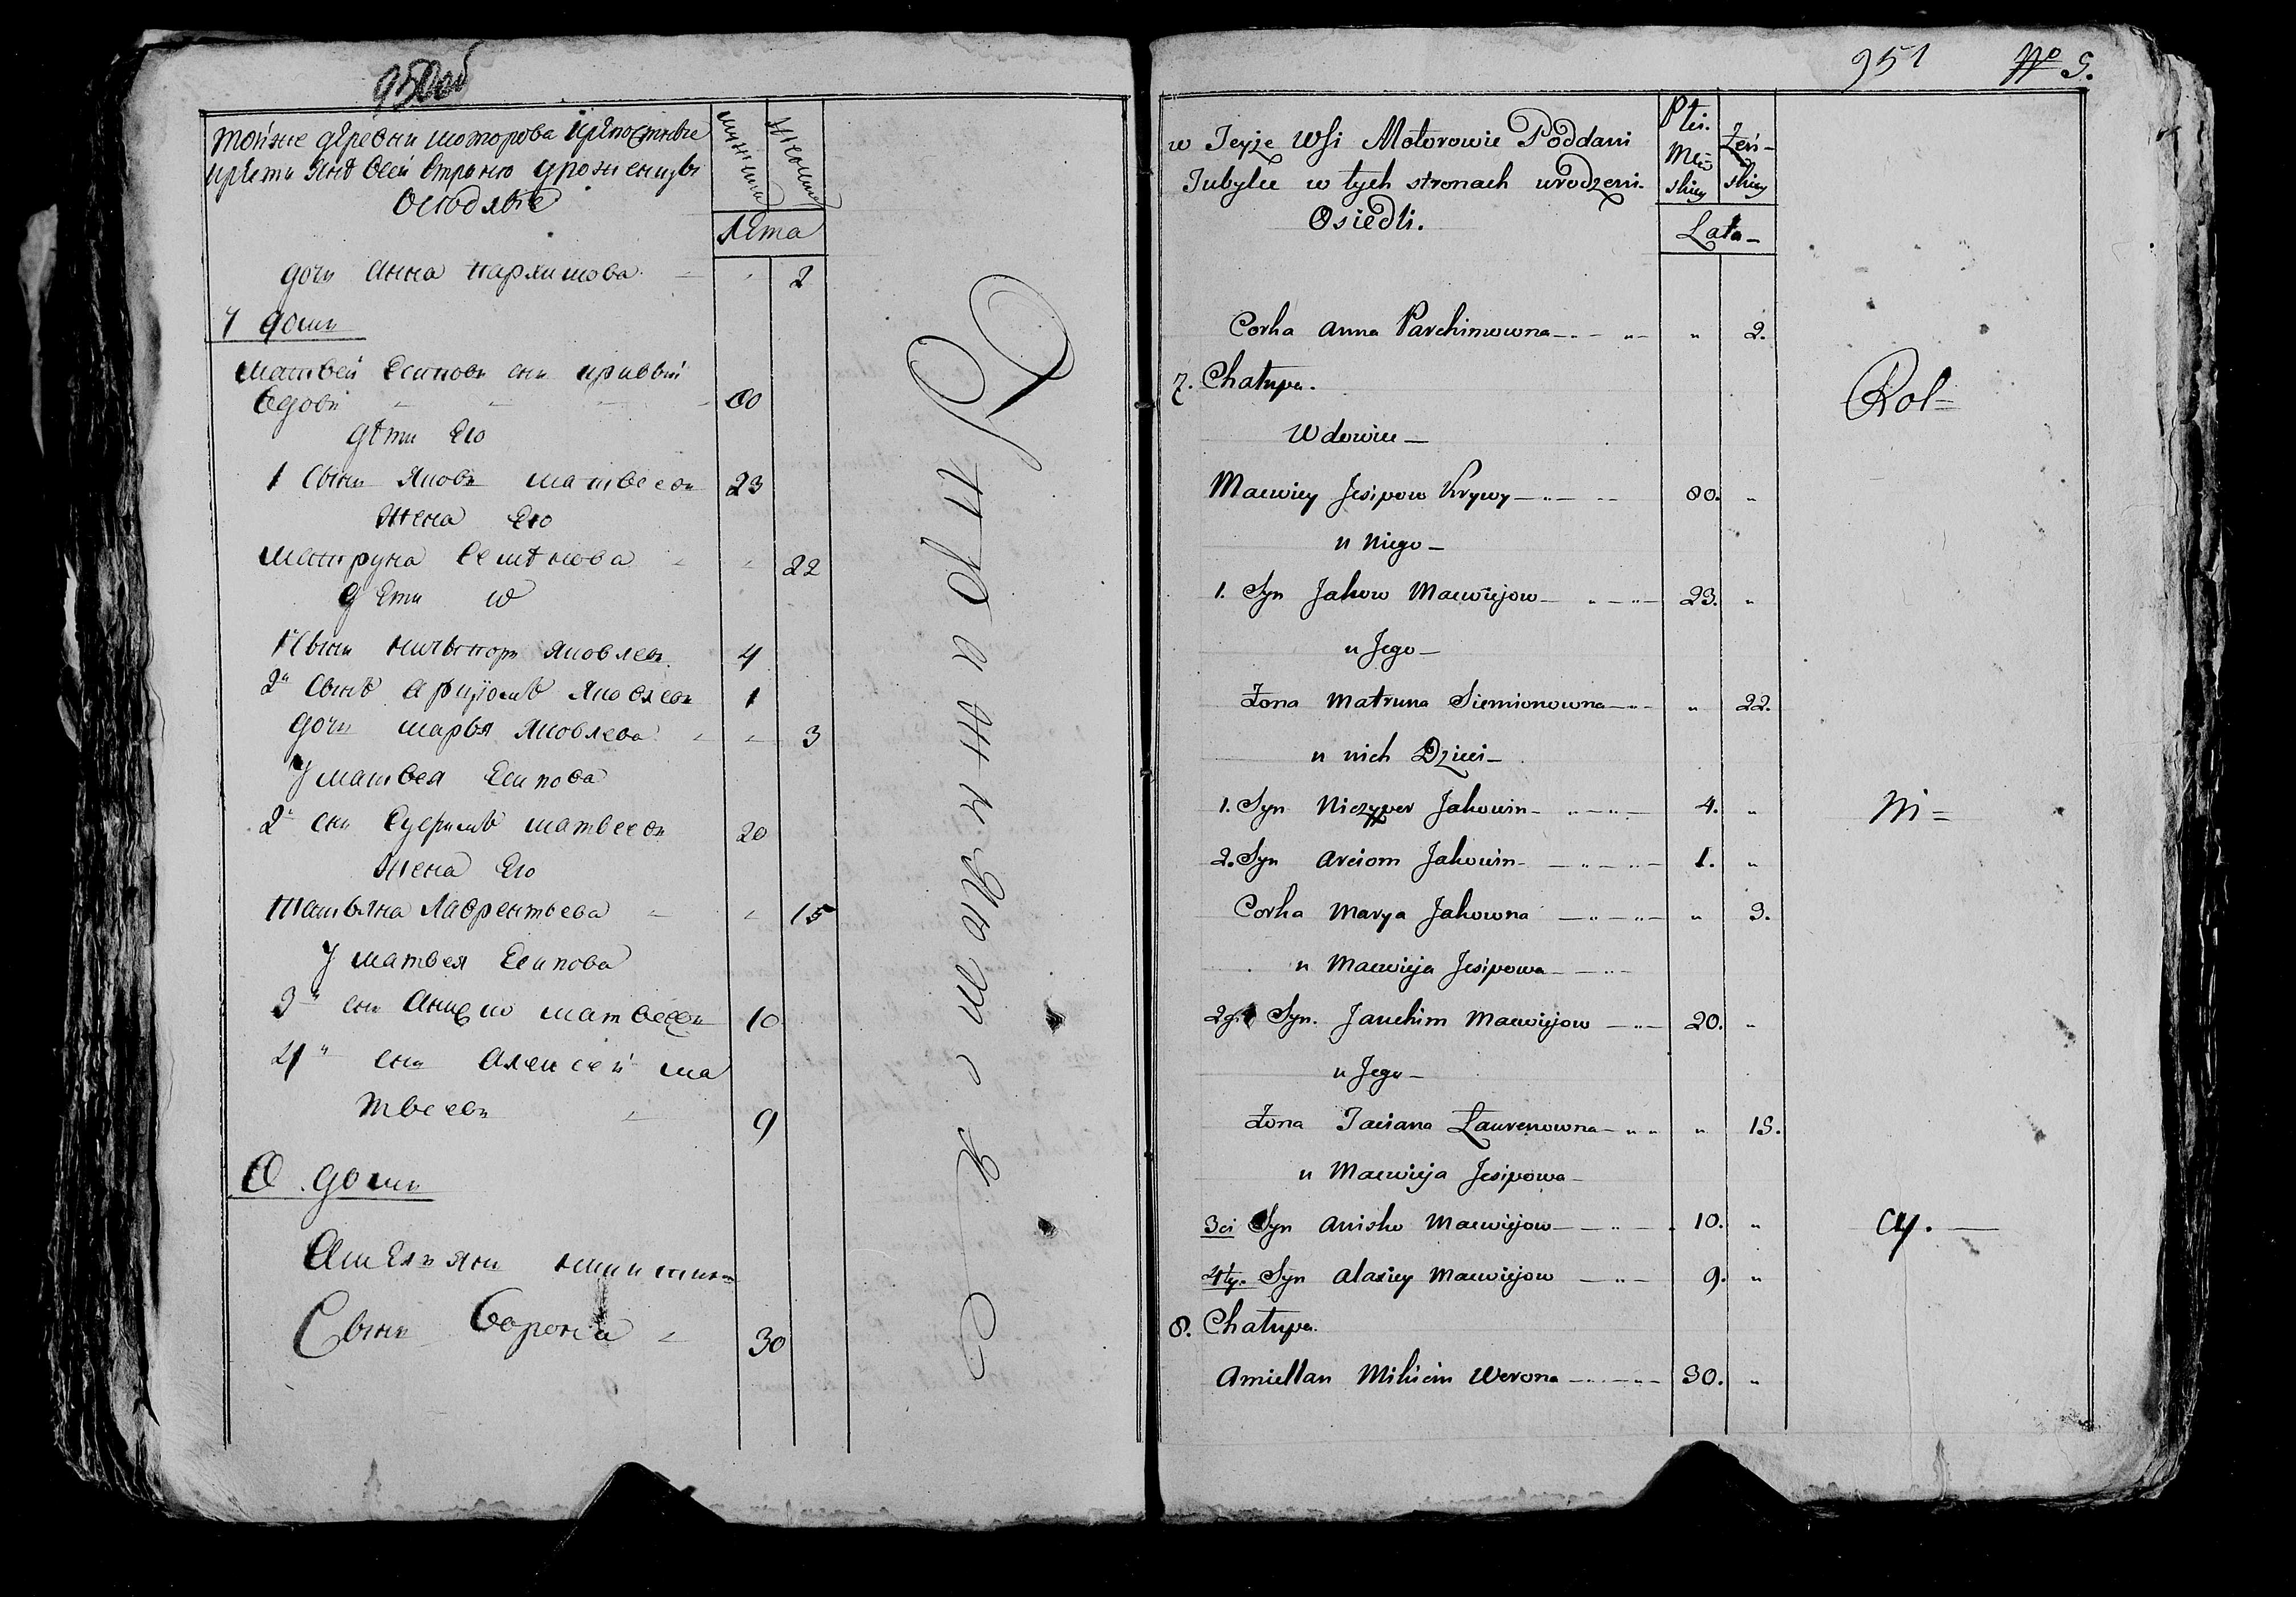 950об
тойже деревни моторова крѣпостные
крѣстьянѣ всей странѣ уроженцы
Оседлые
мужеска
женска
лѣта
дочь анна пархимова " 2
7 домъ
матвей Есиповъ снъ кривый
вдовъ 80
дѣти Его
1 Сынъ Яковъ матвеевъ 23
жена Его
матруна Семѣнова " 22
дѣти их
1 Сынъ ничыпоръ Яковлевъ 4
2й Сынъ арциомъ Яковлевъ 1
дочь марья Яковлева " 3
У матвея Есипова
2й снъ Ефримъ матвеевъ 20
жена Его
татьяна лаврентьева " 15
У матвея Есипова
3й снъ Аниско матвеевъ 10
4й снъ Алексей ма
твеевъ 9
8 домъ
Амельянъ микитинъ
Сынъ Ворона 30
951 No 5.
w Teyże Wsi Motorowie Poddani
Tubylce w tych stronach urodzeni.
Osiedli.
Płci.
Mę-
skiey
Żeń-
skiey
Lata
Corka Anna Parchimowna " 2.
7. Chałupa.
Wdowiec
Maciey Jesipow Krywy 80. "
u niego
1. Syn Jakow Maciejow 23. "
u Jego
Żona Matruna Siemionowna " 22.
u nich Dzieci
1. Syn Niczyper Jakowin 4. "
2. Syn Arciom Jakowin 1. "
Corka Marya Jakowna " 3.
u Macieja Jesipowa
2gi Syn. Jauchim Maciejow 20. "
u Jego
Żona Taciana Laurenowna " 15.
u Macieja Jesipowa
3ci Syn Anisko Maciejow 10. "
4ty. Syn Alaxiey Maciejow 9. "
8. Chałupa.
Amiellan Mikicin Werona 30. "
Rol=
ni=
cy.